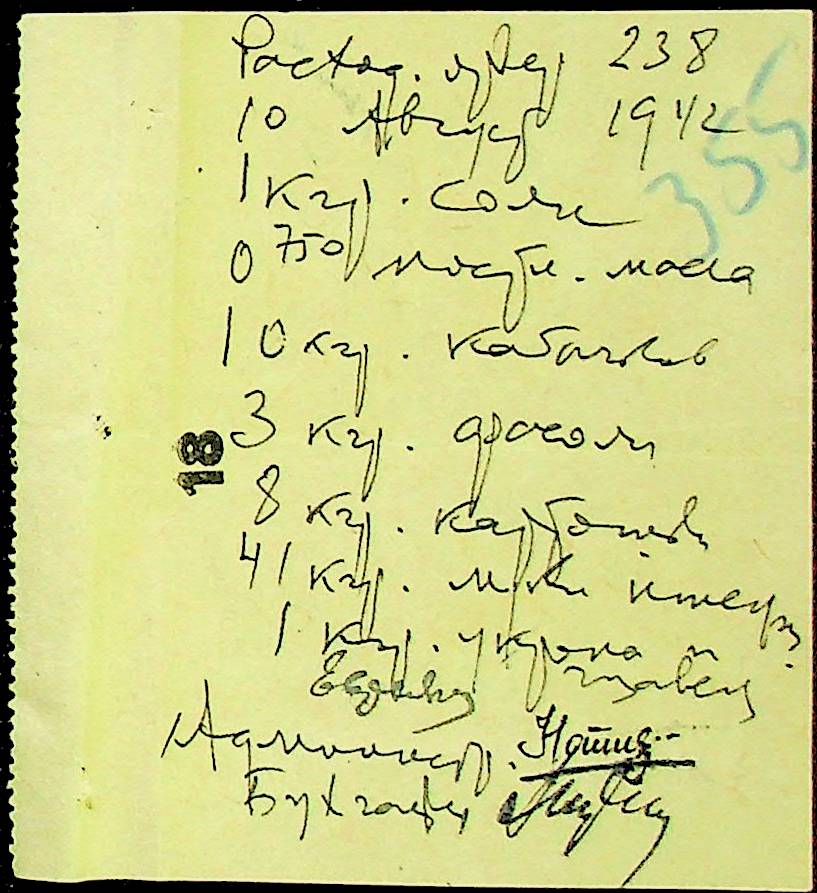 Расход. ордер 238
10 Август 1942
355
1 кгр. соли
0 750 постн. масла
10 кгр. кабачков
3 кгр. фасоли
18
8 кгр. картошки
41 кгр. муки
1 кгр. укропа и
щавель
Администр.
Бухгалтер